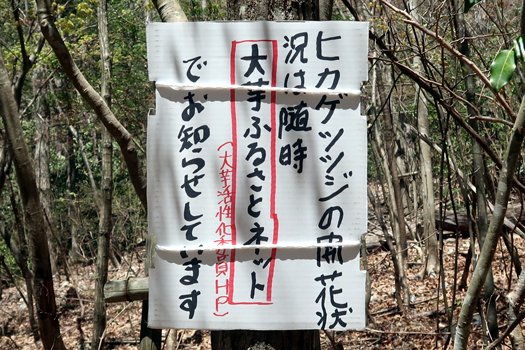 ヒカゲツツジの開花状
況は随時
大芋ふるさとネット
(大芋活性化委員HP)
でお知らせしています